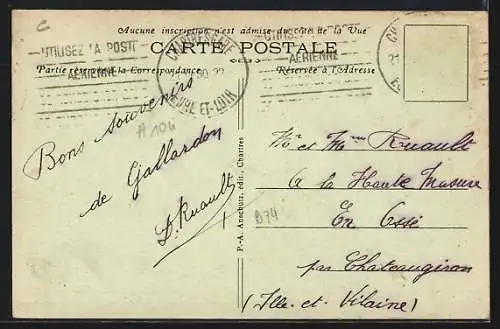 C
Aucune inscription n'est admise du côté de la Vue
CARTE POSTALE
Partie réservée à la Correspondance
Réservée à l'Adresse
UTILISEZ LA POSTE
AÉRIENNE
CHARTRES GARE
EURE-ET-LOIR
UTILISEZ
AÉRIENNE
A 106
Bons souvenirs
de Gallardon
D. Ruault
P.-A. Anschutz, édit., Chartres
874
Mr et Mme Ruault
A la Haute Masure
En Essé
par Chateaugiron
(Ille-et-Vilaine)